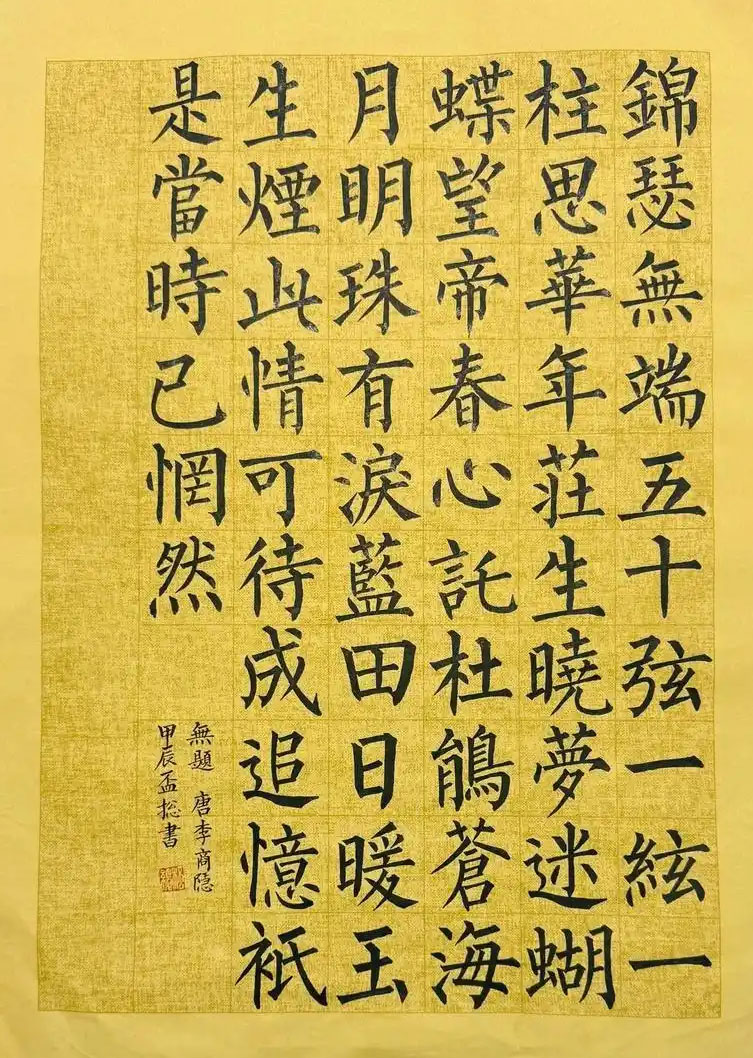 錦瑟無端五十弦一絃一
柱思華年莊生曉夢迷蝴
蝶望帝春心託杜鵑蒼海
月明珠有淚藍田日暖玉
生煙此情可待成追憶衹
是當時已惘然
無題 唐李商隐
甲辰孟㧾書